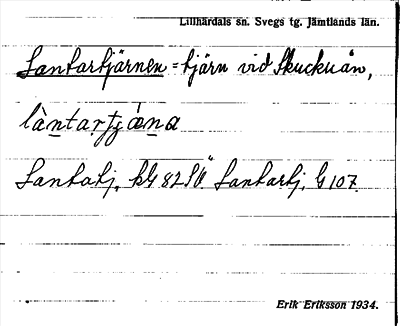 Lillhärdals sn. Svegs tg. Jämtlands län.
Lantartjärnen = tjärn vid Skuckuån,
Lantatj. kG 82 SV Lantartj. G 107.
Erik Eriksson 1934.